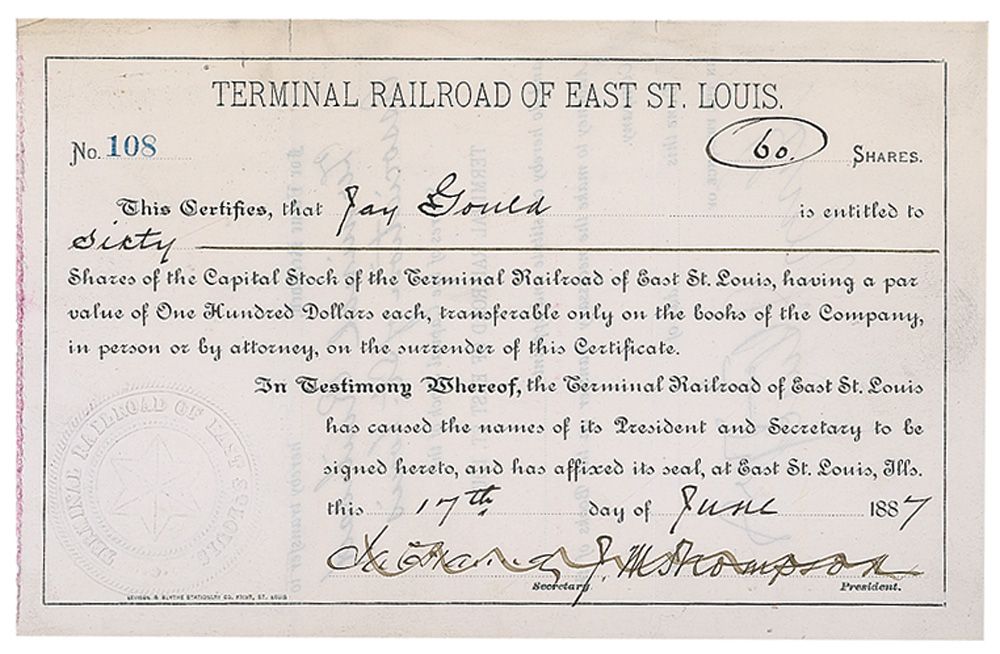 TERMINAL RAILROAD OF EAST ST. LOUIS.
No. 108
60. SHARES.
This Certifies, that Jay Gould is entitled to
Sixty
Shares of the Capital Stock of the Terminal Railroad of East St. Louis, having a par
value of One Hundred Dollars each, transferable only on the books of the Company,
in person or by attorney, on the surrender of this Certificate.
In Testimony Whereof, the Terminal Railroad of East St. Louis
has caused the names of its President and Secretary to be
signed hereto, and has affixed its seal, at East St. Louis, Ills.
this 17th day of June 1887
J. M Thompson
Secretary. President.
TERMINAL RAILROAD OF EAST ST LOUIS
LEVISON & BLYTHE STATIONERY CO. PRINT, ST. LOUIS